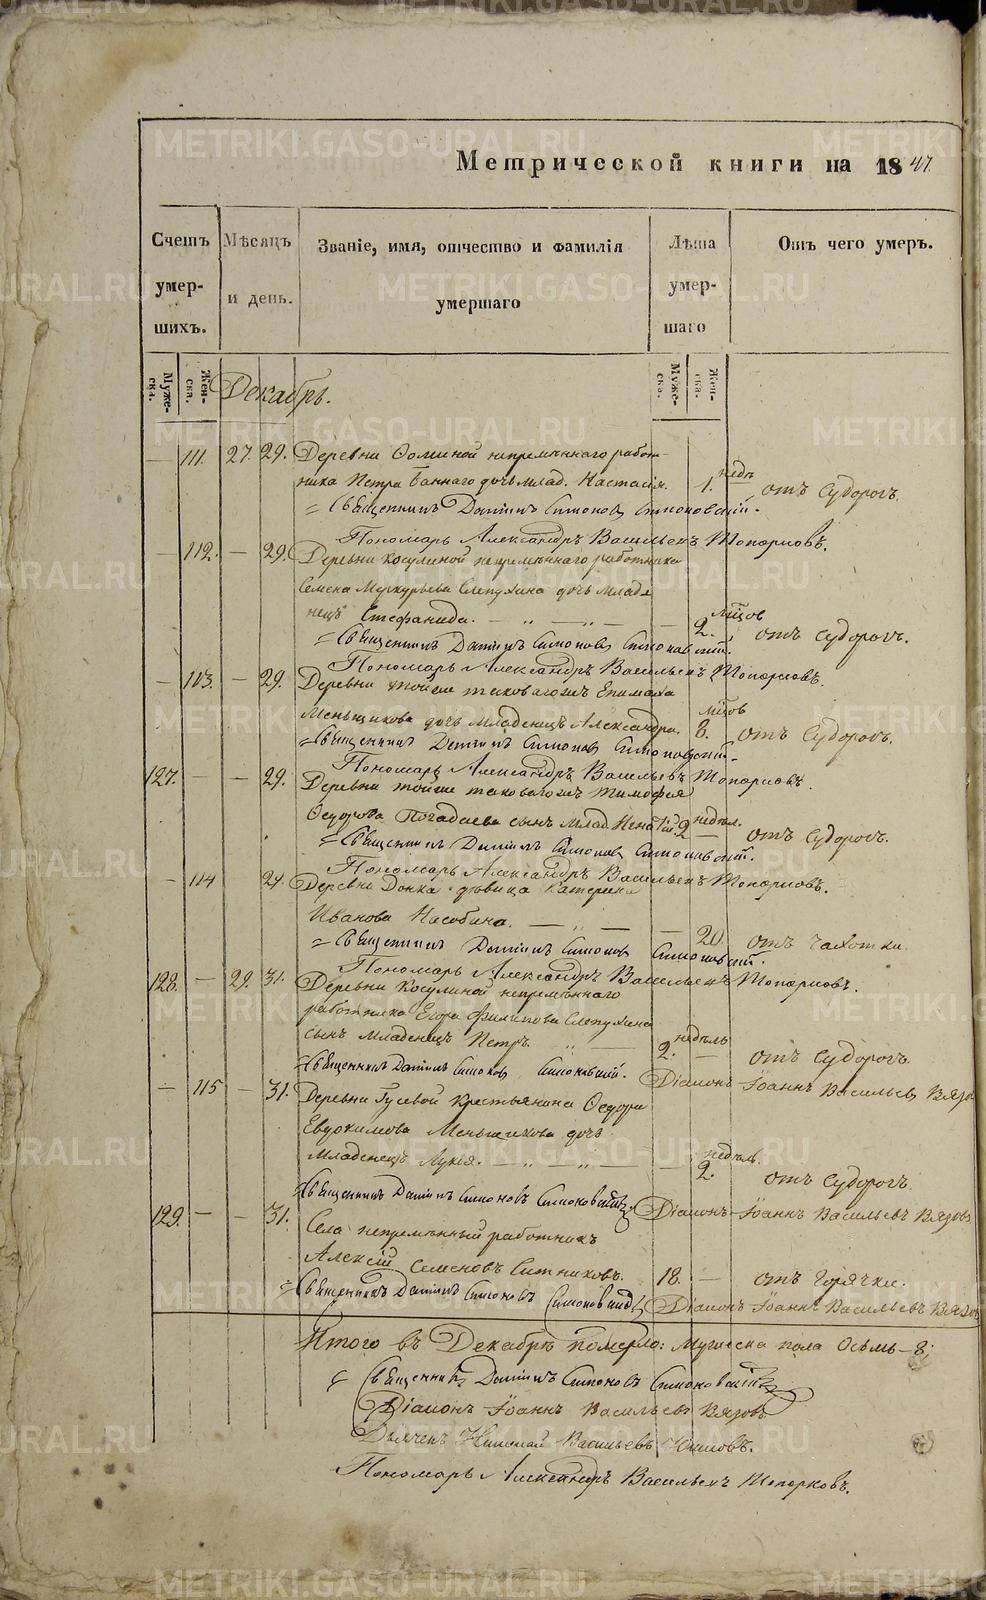 Метрической книги на 1847
Счетъ умер-шихъ.
Мѣсяцъ и день.
Званіе, имя, отчество и фамилія умершаго
Лѣта умер-шаго
Отъ чего умеръ.
Муже-ска.
Жен-ска.
Муже-ска.
Жен-ска.
Декабрь.
— 111. 27. 29. Деревни непремѣннаго работ-
ника Петра дочь млад. Настасія. 1. недѣ отъ судорогъ.
Священникъ Даніилъ Симоновъ Симоновскій.
Пономарь Александръ Васильевъ Топорковъ.
— 112. — 29. Деревни Косулиной непремѣннаго работника
Семена Меркурьева Слепухина дочь млад
нецъ Стефанида. — „ — „ — 2. мѣсцов отъ судорогъ.
Священникъ Даніилъ Симоновъ Симоновскій.
Пономарь Александръ Васильевъ Топорковъ.
— 113. — 29. Деревни тойже таковагожъ Епимаха
Меньщикова дочь младенецъ Александра. 8. мѣсцов отъ судорогъ.
Священникъ Даніилъ Симоновъ Симоновскій.
Пономарь Александръ Васильевъ Топорковъ.
127. — — 29. Деревни тойже таковагожъ Тимофея
Ѳедорова Погадаева сынъ млад. Игнатій. 2 недѣл. — отъ судорогъ.
Священникъ Даніилъ Симоновъ Симоновскій.
Пономарь Александръ Васильевъ Топорковъ.
— 114 29. Деревни дѣвица Катерина
Иванова — „ — — 20. отъ чахотки.
Священникъ Даніилъ Симоновъ Симоновскій.
Пономарь Александръ Васильевъ Топорковъ.
128. — 29. 31. Деревни Косулиной непремѣннаго
работника Егора Филипова Слепухина
сынъ младенецъ Петръ. „ — 2. недѣль — отъ судорогъ.
Священникъ Даніилъ Симоновъ Симоновскій. Діаконъ Іоаннъ Васильевъ Вязо
— 115 — 31. Деревни Гусевой крестьянина Ѳедора
Евдокимова Меньшикова дочь
младенецъ Лукія. — „ — „ — — 2. недѣль. отъ судорогъ.
Священникъ Даніилъ Симоновъ Симоновскій Діаконъ Іоаннъ Васильевъ Вязовъ
129. — — 31. Села непремѣнный работникъ
Алексій Семеновъ Ситниковъ. 18. — отъ горячки.
Священникъ Даніилъ Симоновъ Симоновскій Діаконъ Іоаннъ Васильевъ Вязов
Итого въ Декабрѣ померло: Мужеска пола Осьмь – 8;
Священникъ Даніилъ Симоновъ Симоновскій
Діаконъ Іоаннъ Васильевъ Вязовъ
Дьячекъ Николай Васильевъ
Пономарь Александръ Васильевъ Топорковъ.
METRIKI.GASO-URAL.RU